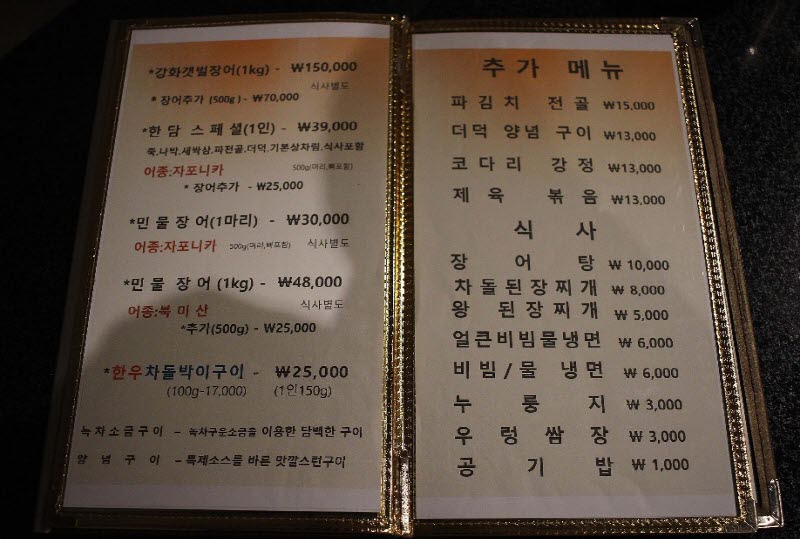 *강화갯벌장어(1kg) - ₩150,000
식사별도
* 장어추가 (500g) - ₩70,000
*한 담 스 페 셜(1인) - ₩39,000
죽,나박,새싹삼,파전골,더덕,기본상차림,식사포함
어종:자포니카 500g(머리,뼈포함)
* 장어추가 - ₩25,000
*민 물 장 어(1마리) - ₩30,000
어종:자포니카 500g(머리,뼈포함) 식사별도
*민 물 장 어 (1kg) - ₩48,000
식사별도
어종:북 미 산
*추가(500g) - ₩25,000
*한우차돌박이구이 - ₩25,000
(100g-17,000) (1인150g)
녹차소금구이 – 녹차구운소금을 이용한 담백한 구이
양 념 구 이 – 특제소스를 바른 맛깔스런구이
추 가 메 뉴
파 김 치 전 골 ₩15,000
더덕 양념 구이 ₩13,000
코 다 리 강 정 ₩13,000
제 육 볶 음 ₩13,000
식 사
장 어 탕 ₩ 10,000
차돌된장찌개 ₩ 8,000
왕 된장찌개 ₩ 5,000
얼큰비빔물냉면 ₩ 6,000
비 빔 / 물 냉 면 ₩ 6,000
누 룽 지 ₩ 3,000
우 렁 쌈 장 ₩ 3,000
공 기 밥 ₩ 1,000